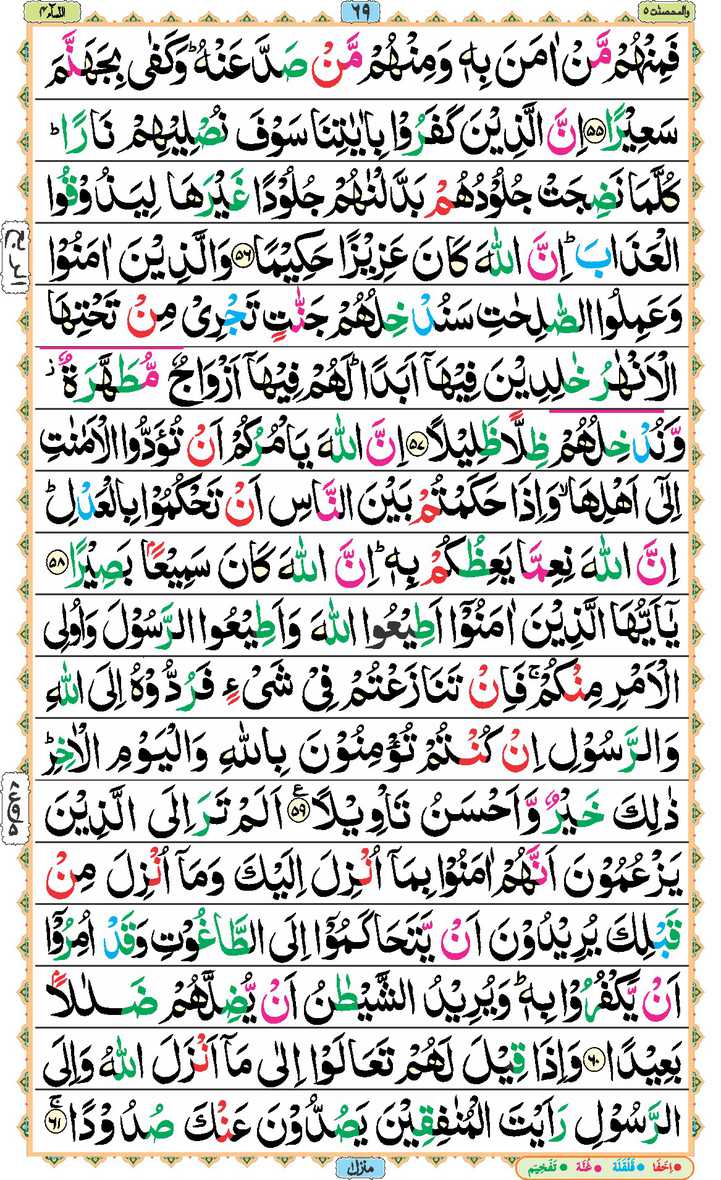 والمحصنت ۵ ۶۹ النساء ۴
فَمِنْهُمْ مَّنْ اٰمَنَ بِهٖ وَمِنْهُمْ مَّنْ صَدَّ عَنْهُ ؕ وَكَفٰی بِجَهَنَّمَ
سَعِیْرًا ﴿۵۵﴾ اِنَّ الَّذِیْنَ كَفَرُوْا بِاٰیٰتِنَا سَوْفَ نُصْلِیْهِمْ نَارًا ؕ
كُلَّمَا نَضِجَتْ جُلُوْدُهُمْ بَدَّلْنٰهُمْ جُلُوْدًا غَیْرَهَا لِیَذُوْقُوا
الْعَذَابَ ؕ اِنَّ اللّٰهَ كَانَ عَزِیْزًا حَكِیْمًا ﴿۵۶﴾ وَالَّذِیْنَ اٰمَنُوْا
وَعَمِلُوا الصّٰلِحٰتِ سَنُدْخِلُهُمْ جَنّٰتٍ تَجْرِیْ مِنْ تَحْتِهَا
الْاَنْهٰرُ خٰلِدِیْنَ فِیْهَاۤ اَبَدًا ؕ لَهُمْ فِیْهَاۤ اَزْوَاجٌ مُّطَهَّرَةٌ ؗ
وَّنُدْخِلُهُمْ ظِلًّا ظَلِیْلًا ﴿۵۷﴾ اِنَّ اللّٰهَ یَاْمُرُكُمْ اَنْ تُؤَدُّوا الْاَمٰنٰتِ
اِلٰۤی اَهْلِهَا ۙ وَاِذَا حَكَمْتُمْ بَیْنَ النَّاسِ اَنْ تَحْكُمُوْا بِالْعَدْلِ ؕ
اِنَّ اللّٰهَ نِعِمَّا یَعِظُكُمْ بِهٖ ؕ اِنَّ اللّٰهَ كَانَ سَمِیْعًۢا بَصِیْرًا ﴿۵۸﴾
یٰۤاَیُّهَا الَّذِیْنَ اٰمَنُوْۤا اَطِیْعُوا اللّٰهَ وَاَطِیْعُوا الرَّسُوْلَ وَاُولِی
الْاَمْرِ مِنْكُمْ ۚ فَاِنْ تَنَازَعْتُمْ فِیْ شَیْءٍ فَرُدُّوْهُ اِلَی اللّٰهِ
وَالرَّسُوْلِ اِنْ كُنْتُمْ تُؤْمِنُوْنَ بِاللّٰهِ وَالْیَوْمِ الْاٰخِرِ ؕ
ذٰلِكَ خَیْرٌ وَّاَحْسَنُ تَاْوِیْلًا ﴿۵۹﴾ ع اَلَمْ تَرَ اِلَی الَّذِیْنَ
یَزْعُمُوْنَ اَنَّهُمْ اٰمَنُوْا بِمَاۤ اُنْزِلَ اِلَیْكَ وَمَاۤ اُنْزِلَ مِنْ
قَبْلِكَ یُرِیْدُوْنَ اَنْ یَّتَحَاكَمُوْۤا اِلَی الطَّاغُوْتِ وَقَدْ اُمِرُوْۤا
اَنْ یَّكْفُرُوْا بِهٖ ؕ وَیُرِیْدُ الشَّیْطٰنُ اَنْ یُّضِلَّهُمْ ضَلٰلًۢا
بَعِیْدًا ﴿۶۰﴾ وَاِذَا قِیْلَ لَهُمْ تَعَالَوْا اِلٰی مَاۤ اَنْزَلَ اللّٰهُ وَاِلَی
الرَّسُوْلِ رَاَیْتَ الْمُنٰفِقِیْنَ یَصُدُّوْنَ عَنْكَ صُدُوْدًا ﴿۶۱﴾ ۚ
منزل ۱
اِخفَا • قَلقَلَة • غُنَّة • تَفْخِیْم •